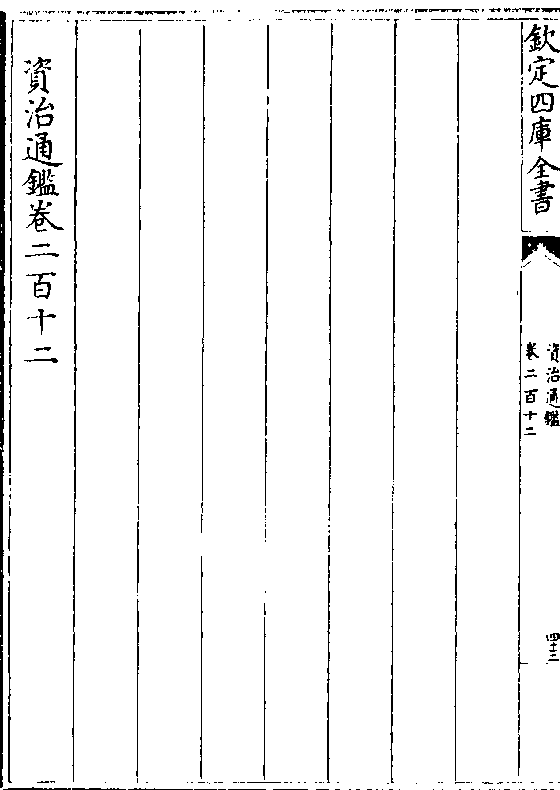 欽定四庫全書
資治通鑑
卷二百十二
四十三
資治通鑑卷二百十二